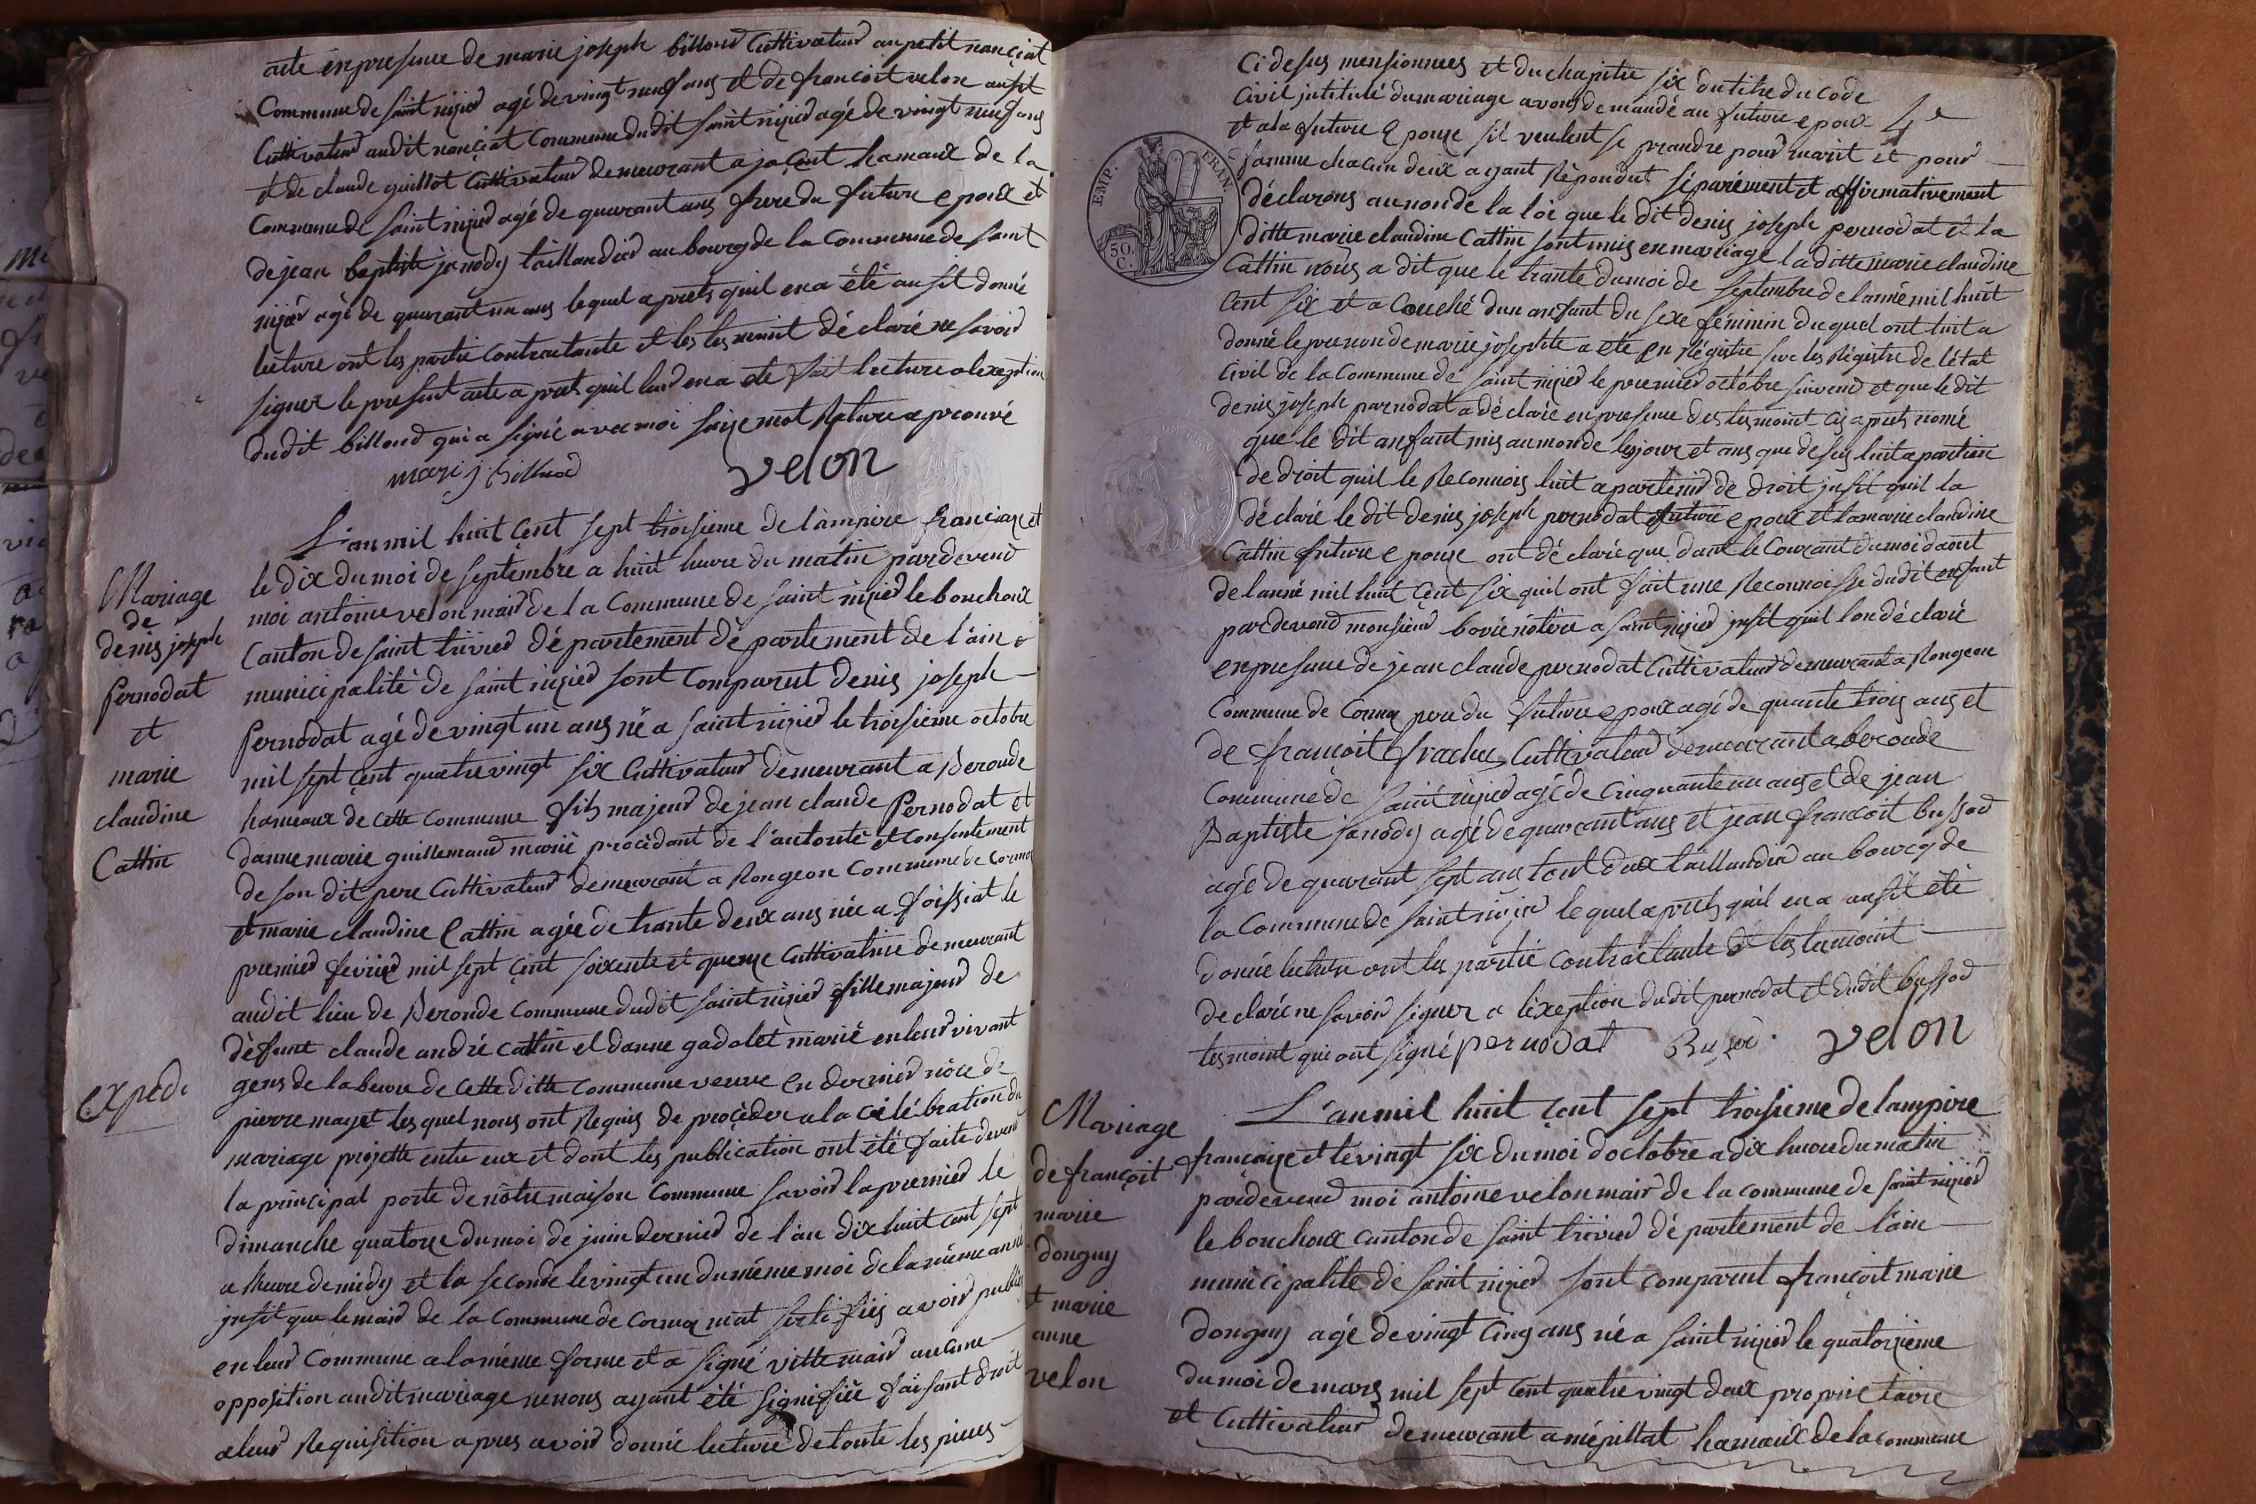 acte en presence de marie joseph billoud Cultivateur au petit nonçiat
Commune de saint nizied agé de vingt neuf ans et de françoit velon ausit
Cultivateur audit nonçiat Commune dudit saint nizied agé de vingt neuf ans
et de claude guillot Cultivateur demeurant a jaçent hamaux de la
Commune de saint nizied agé de quarant ans frere du future epoux et
de jean baptiste janody taillandier au bourg de la Commune de saint
nizier agé de quarant un ans lequel apretz quil en a été ausit donné
lecture ont les partie contractante et les tesmoint déclaré ne savoir
signer le present acte apret quil leur en a ete fait lecture a lexeption
dudit billoud qui a signé avec moi saize mot Rature aprouvé
marij Billiuod
velon
Mariage
de
denis joseph
Pernodat
et
marie
claudine
Cattin
exped.
L'an mil huit çent sept troisieme de l'ampire françiaze et
le dix du moi de septembre a huit heure du matin pardevend
moi antoine velon maire de la Commune de saint nizied le bouchoux
Canton de saint trivier département département de l'ain
municipalité de saint nizied sont comparut denis joseph
Pernodat agé de vingt un ans né a saint nizied le troisieme octobre
mil sept çent quatre vingt six Cultivateur demeurant a Beronde
hameaux de cette commune fils majeur de jean claude Pernodat et
danne marie guillemaud marié procédant de l'autorité et consentement
de son dit pere Cultivateur demeurant a Rongeon Commune de Cormoz
et marie claudine Cattin agée de trante deux ans née a foissiat le
premier fevrier mil sept çent soixente et quenze Cultivatrice demeurant
audit lieu de Beronde commune dudit saint nizied fille majeur de
défunt claude andré Cattin et danne gadolet marié en leur vivant
gens de labeure de cette ditte commune veuve en dernied nôce de
pierre mayet les quel nous ont Requis de proçèder a la célébration du
mariage projetté entre eux et dont les publication ont été faite devend
la principal porte de nôtre maison commune savoir la premier le
dimanche quatorze du moi de juin dernier de l'an dix huit cent sept
a heure de midy et la seconde le vingt un du même moi de la même anné
insit que le maire de la Commune de Cormoz mat sertifiés avoir publiés
en leur Commune a la même forme et a signé vitte maire aucune
opposition audit mariage ne nous ayant été signifiée faisant droit
a leur Requisition apres avoir donné lecture de toute les pieces
ci desus mensionnees et du chapitre six du titre du code
Civil intitulé du mariage avons demandé au future epoux
et a la future Epouze sil veulent se prandre pour marit et pour
famme chacun deux ayant Répondut séparément et affirmativement
4e
EMP. FRAN.
50. C.
déclarons au non de la loi que le dit denis joseph pernodat et la
ditte marie claudine Cattin sont unis en mariage la ditte marie claudine
Cattin nous a dit que le trante du moi de septembre de lanné mil huit
cent six et a Couché dun anfant du sexe féminin du quel ont luit a
donné le prenon de marie josephte a ete en Régistre sur les Régistre de létat
Civil de la Commune de saint nizied le premier octobre suivend et que le dit
denis joseph parnodat a déclaré en presence des tesmoint cy apres nomé
que le dit anfant mis au monde les jour et ans que desus luit apartien
de droit quil le Reconnois luit apartenir de droit insit quil la
déclaré le dit denis joseph pernodat future epoux et la marie claudine
Cattin future epouze ont déclaré que dans le Courant du moi daout
de lanné mil huit çent six quil ont fait une Reconnoisse dudit enfant
pardevend monsieur bovié nôtère a saint nizied insit quil lon déclaré
en presence de jean claude pernodat Cultivateur demeurant a Rongeon
Commune de Cormoz pere du future epoux agé de quarante trois ans et
de françoit frachu Cultivateur demeurant a beronde
Commune de saint nizied agé de Cinquante un ans et de jean
Baptiste janody agé de quarant ans et jean françoit bussod
agé de quarant sept ans tout deux taillandier au bourg de
la Commune de saint nizied lequel aprets quil en a ausit été
donné lecture ont les partie contractante et les tesmoint
declaré ne savoir signer a léxeption dudit pernodat et dudit bussod
tesmoint qui ont signé pernodat Bussod velon
Mariage
de françoit
marie
donguy
et marie
anne
velon
L'an mil huit çent sept troisieme de lampire
françaize et le vingt six du moi doctobre a dix heure du matin
pardevend moi antoine velon maire de la commune de saint nizied
le bouchoux canton de saint trivier département de l'ain
municipalite de saint nizied sont comparut françoit marie
donguy agé de vingt cinq ans né a saint nizied le quatorzième
du moi de mars mil sept cent quatre vingt deux propriétaire
et Cultivateur demeurant a mépillat hamaux de la commune